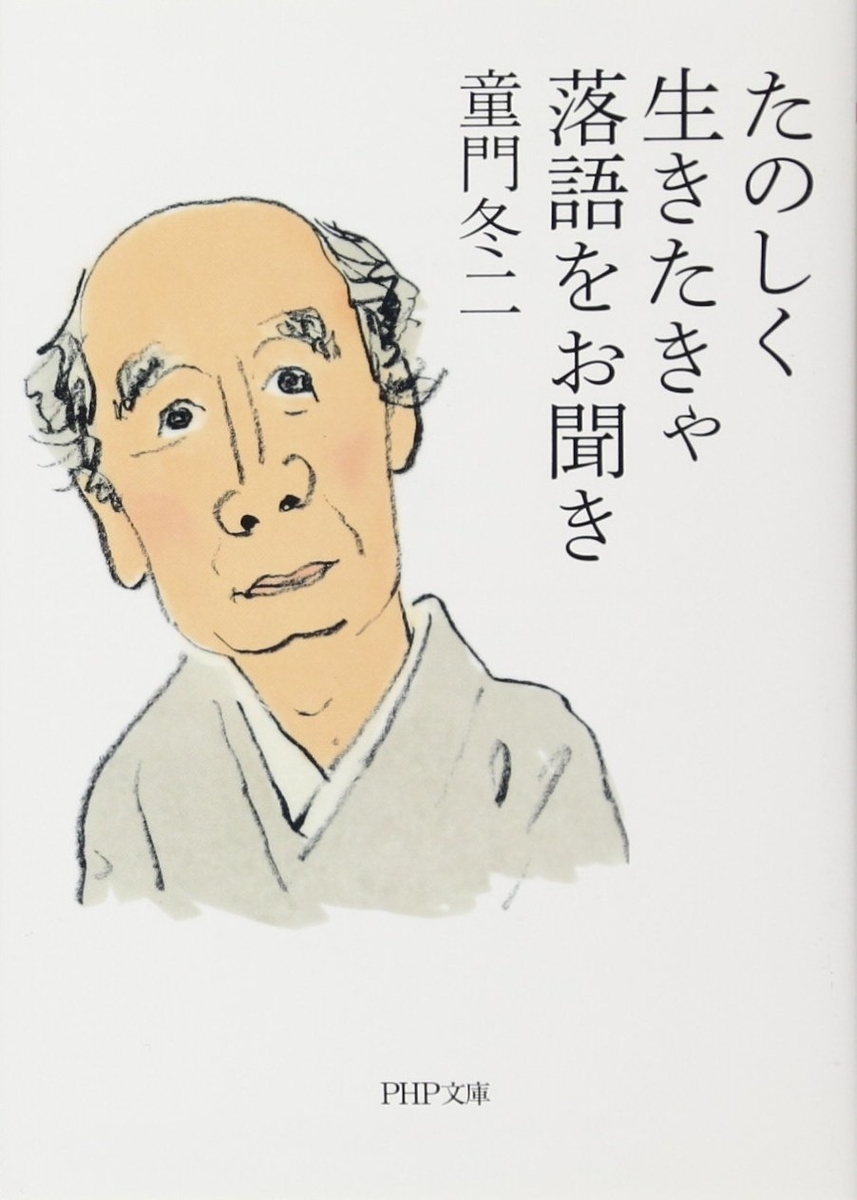 たのしく
生きたきゃ
落語をお聞き
童門冬二
PHP文庫